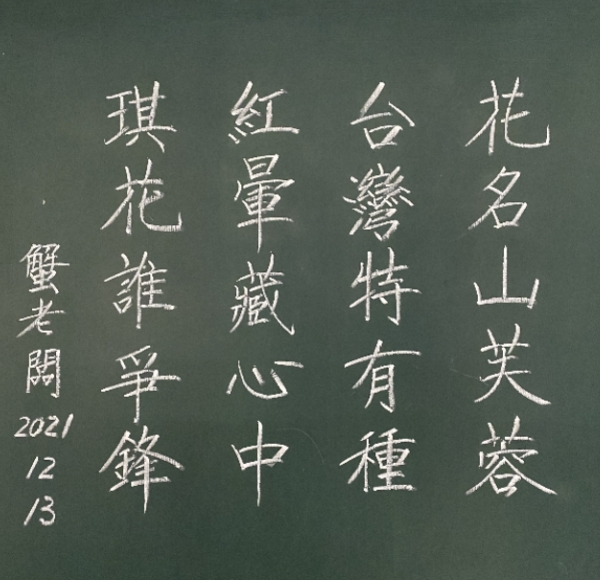 花名山芙蓉
台灣特有種
紅暈藏心中
琪花誰爭鋒
蟹老闆
2021
12
13